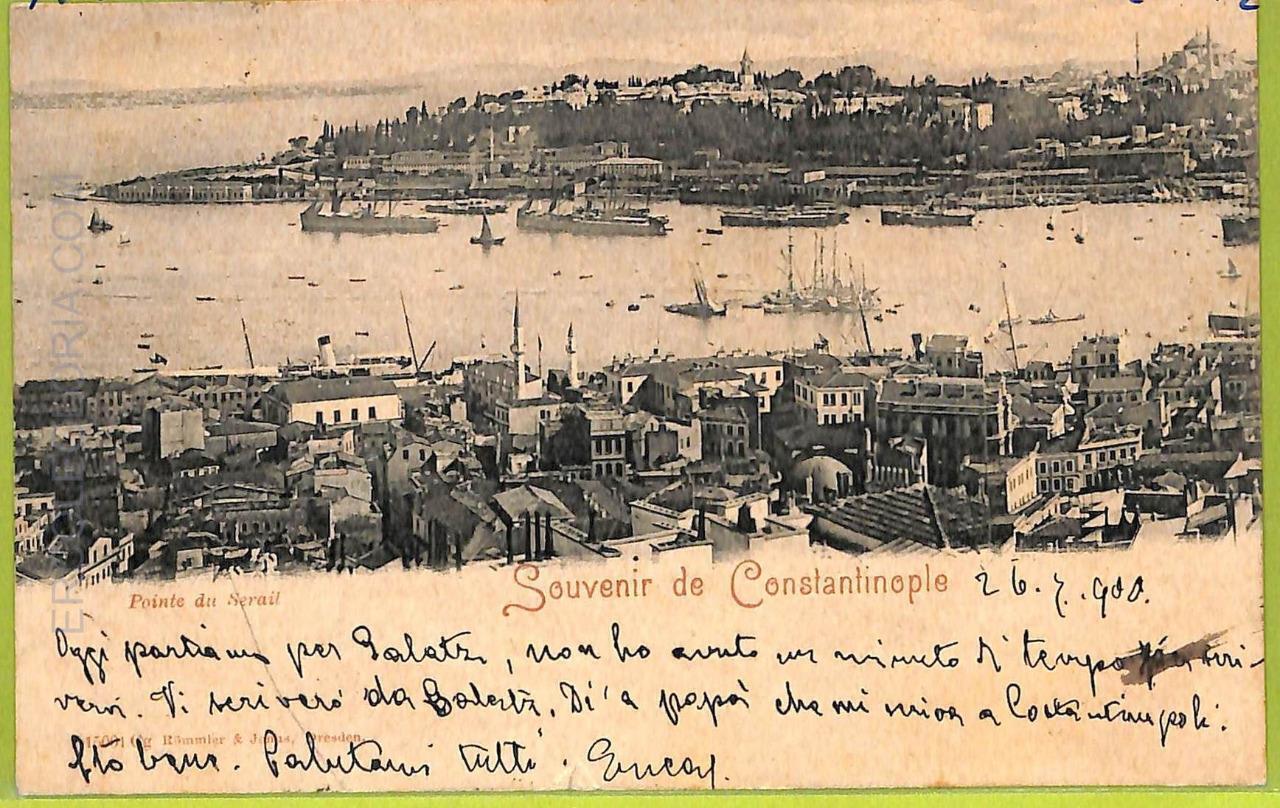 Souvenir de Constantinople 26.7.900.
Pointe du Serail
Oggi partiamo per Galatz, non ho avuto un minuto di tempo per scri-
vervi. Vi scriverò da Galatz. Di' a papà che mi scriva a Costantinopoli.
Rommler & Jonas, Dresden.
Sto bene. Salutami tutti.
ERCOLEGLORIA.COM